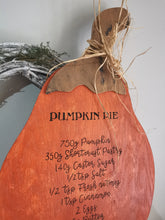 PUMPKIN PIE
750g Pumpkin
350g Shortcrust Pastry
140g Caster Sugar
1/2 tsp Salt
1/2 tsp Fresh nutmeg
1 tsp Cinnamon
2 Eggs